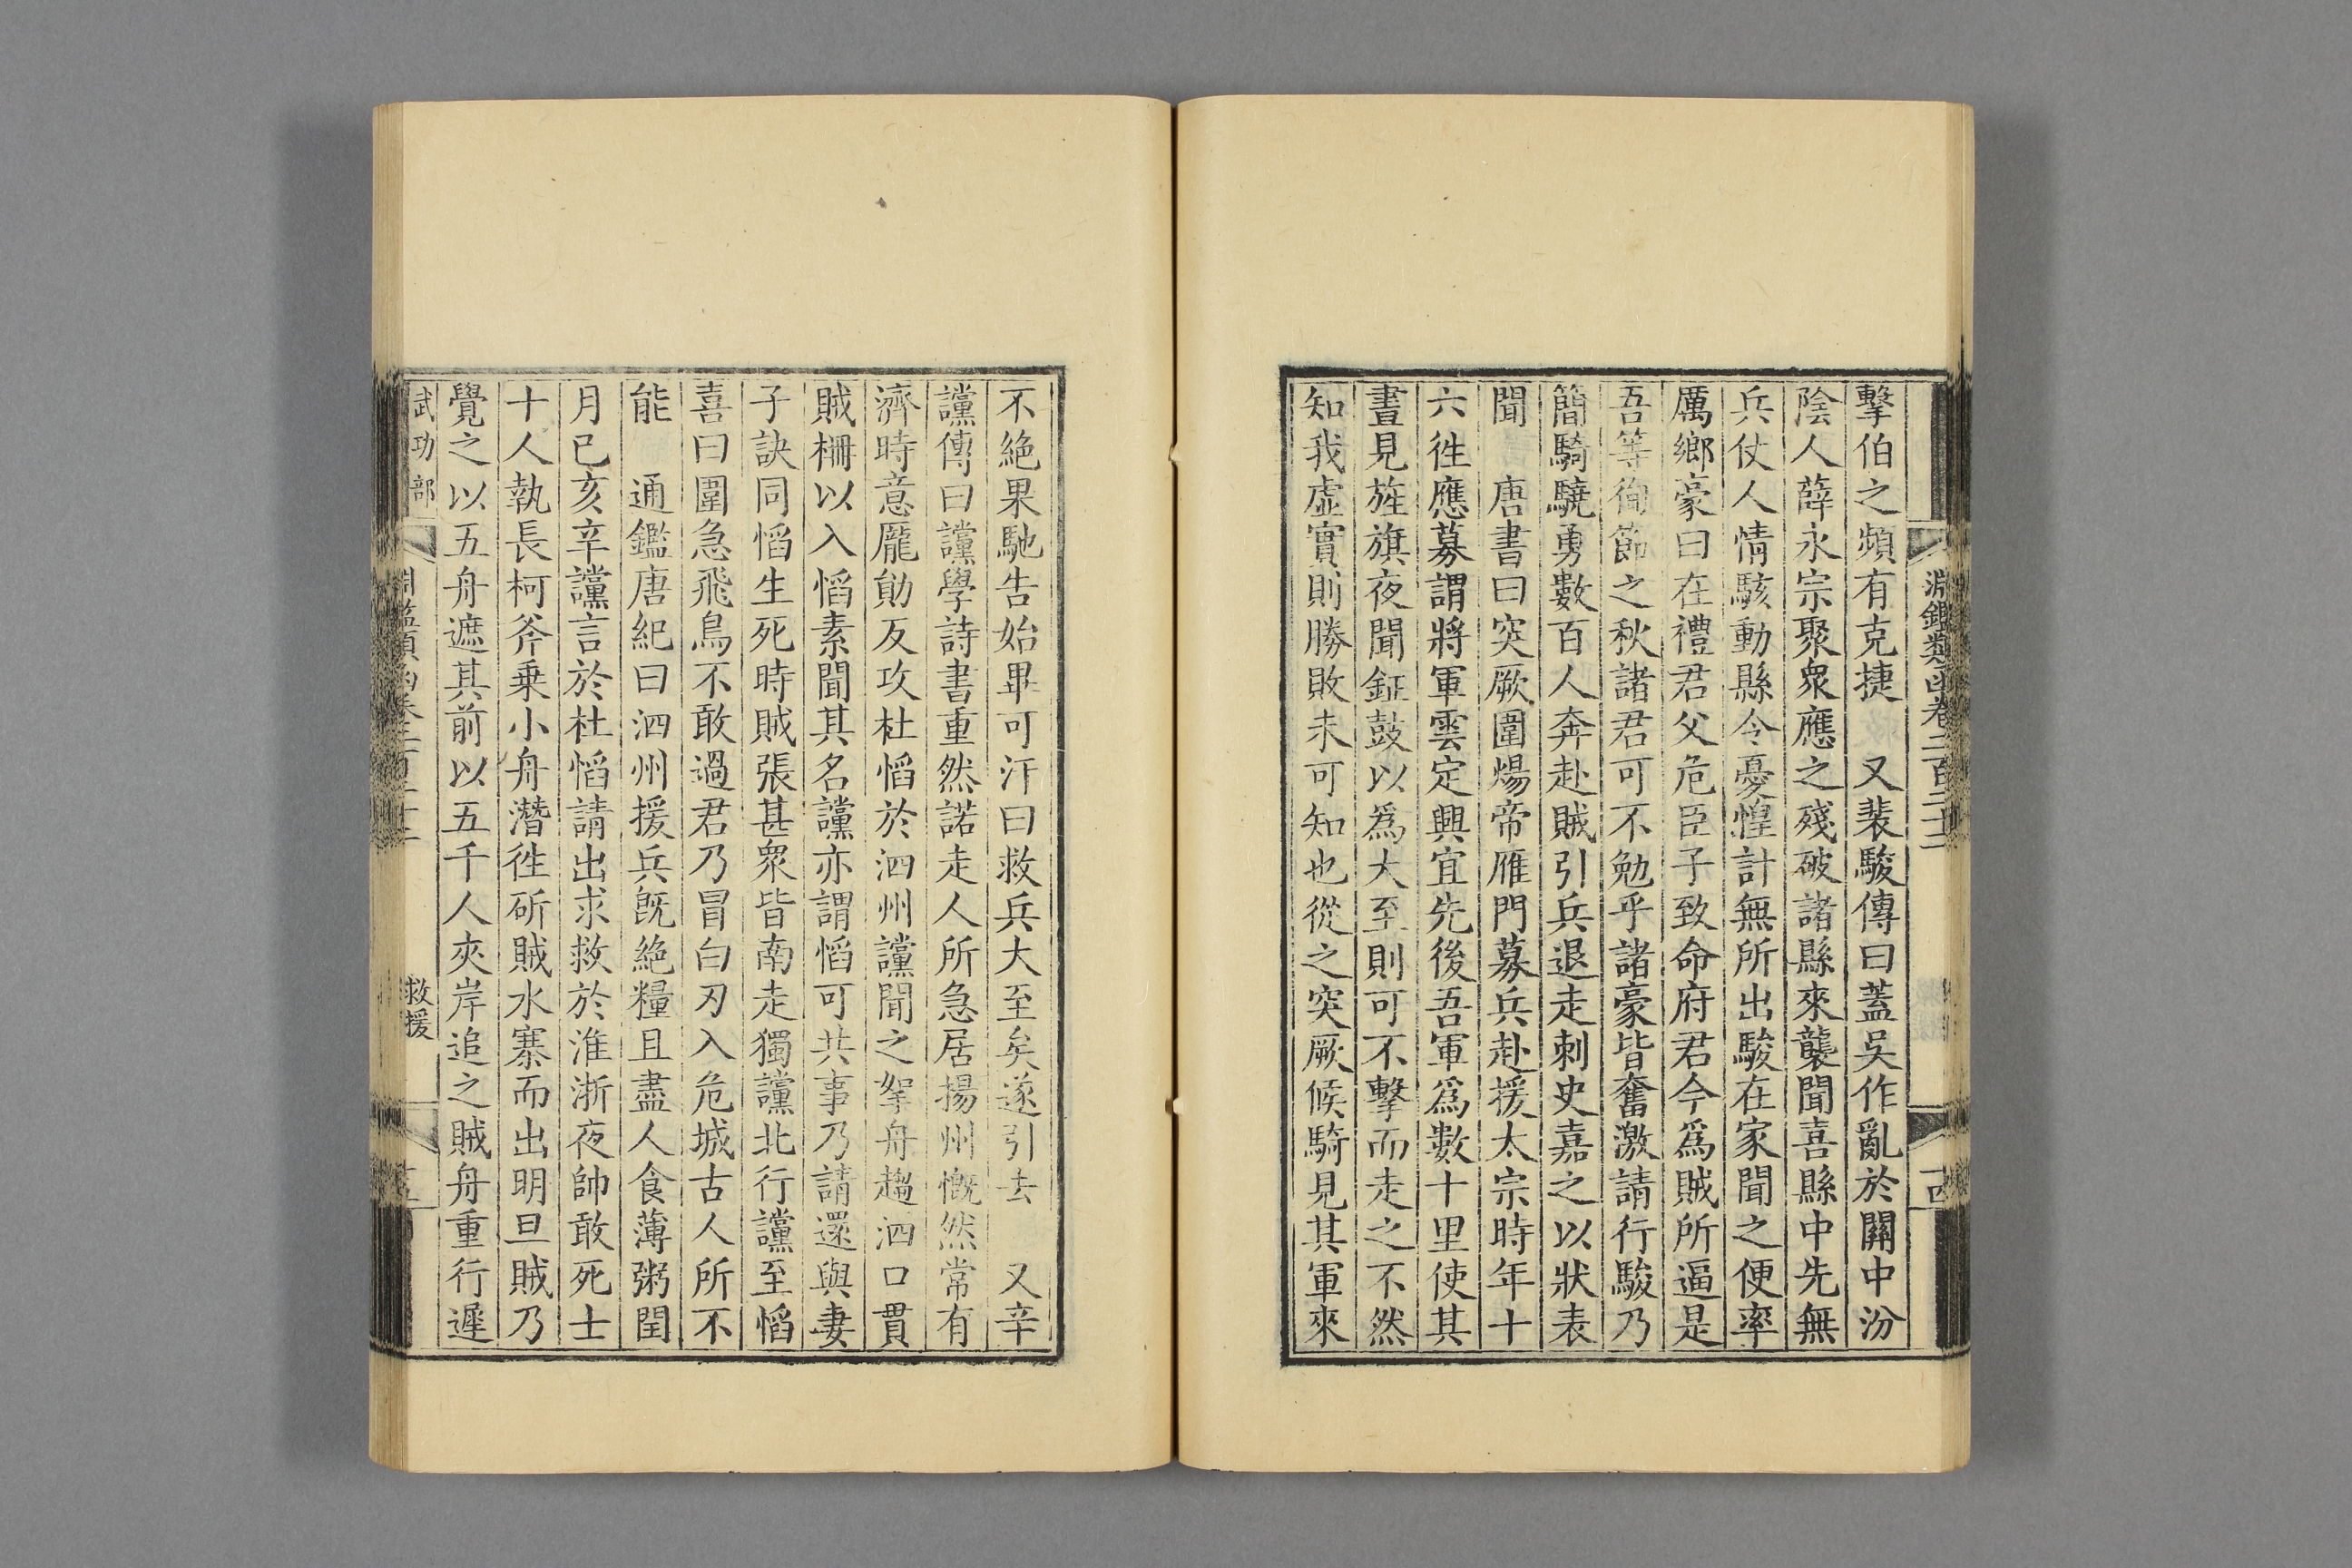 淵鑑類函卷二百二十二
十四
擊伯之頻有克捷　又裴駿傳曰蓋吳作亂於關中汾
陰人薛永宗聚衆應之殘破諸縣來襲聞喜縣中先無
兵仗人情駭動縣令憂惶計無所出駿在家聞之便率
厲鄉豪曰在禮君父危臣子致命府君今爲賊所逼是
吾等徇節之秋諸君可不勉乎諸豪皆奮激請行駿乃
簡騎驍勇數百人奔赴賊引兵退走刺史嘉之以狀表
聞　唐書曰突厥圍煬帝雁門募兵赴援太宗時年十
六徃應募謂將軍雲定興宜先後吾軍爲數十里使其
晝見旌旗夜聞鉦鼓以爲大至則可不擊而走之不然
知我虛實則勝敗未可知也從之突厥候騎見其軍來
不絕果馳告始畢可汗曰救兵大至矣遂引去　又辛
讜傳曰讜學詩書重然諾走人所急居揚州慨然常有
濟時意龎勛反攻杜慆於泗州讜聞之拏舟趨泗口貫
賊柵以入慆素聞其名讜亦謂慆可共事乃請還與妻
子訣同慆生死時賊張甚衆皆南走獨讜北行讜至慆
喜曰圍急飛鳥不敢過君乃冒白刃入危城古人所不
能　通鑑唐紀曰泗州援兵旣絕糧且盡人食薄粥閏
月已亥辛讜言於杜慆請出求救於淮浙夜帥敢死士
十人執長柯斧乗小舟潛徃斫賊水寨而出明旦賊乃
覺之以五舟遮其前以五千人夾岸追之賊舟重行遲
武功部
救援